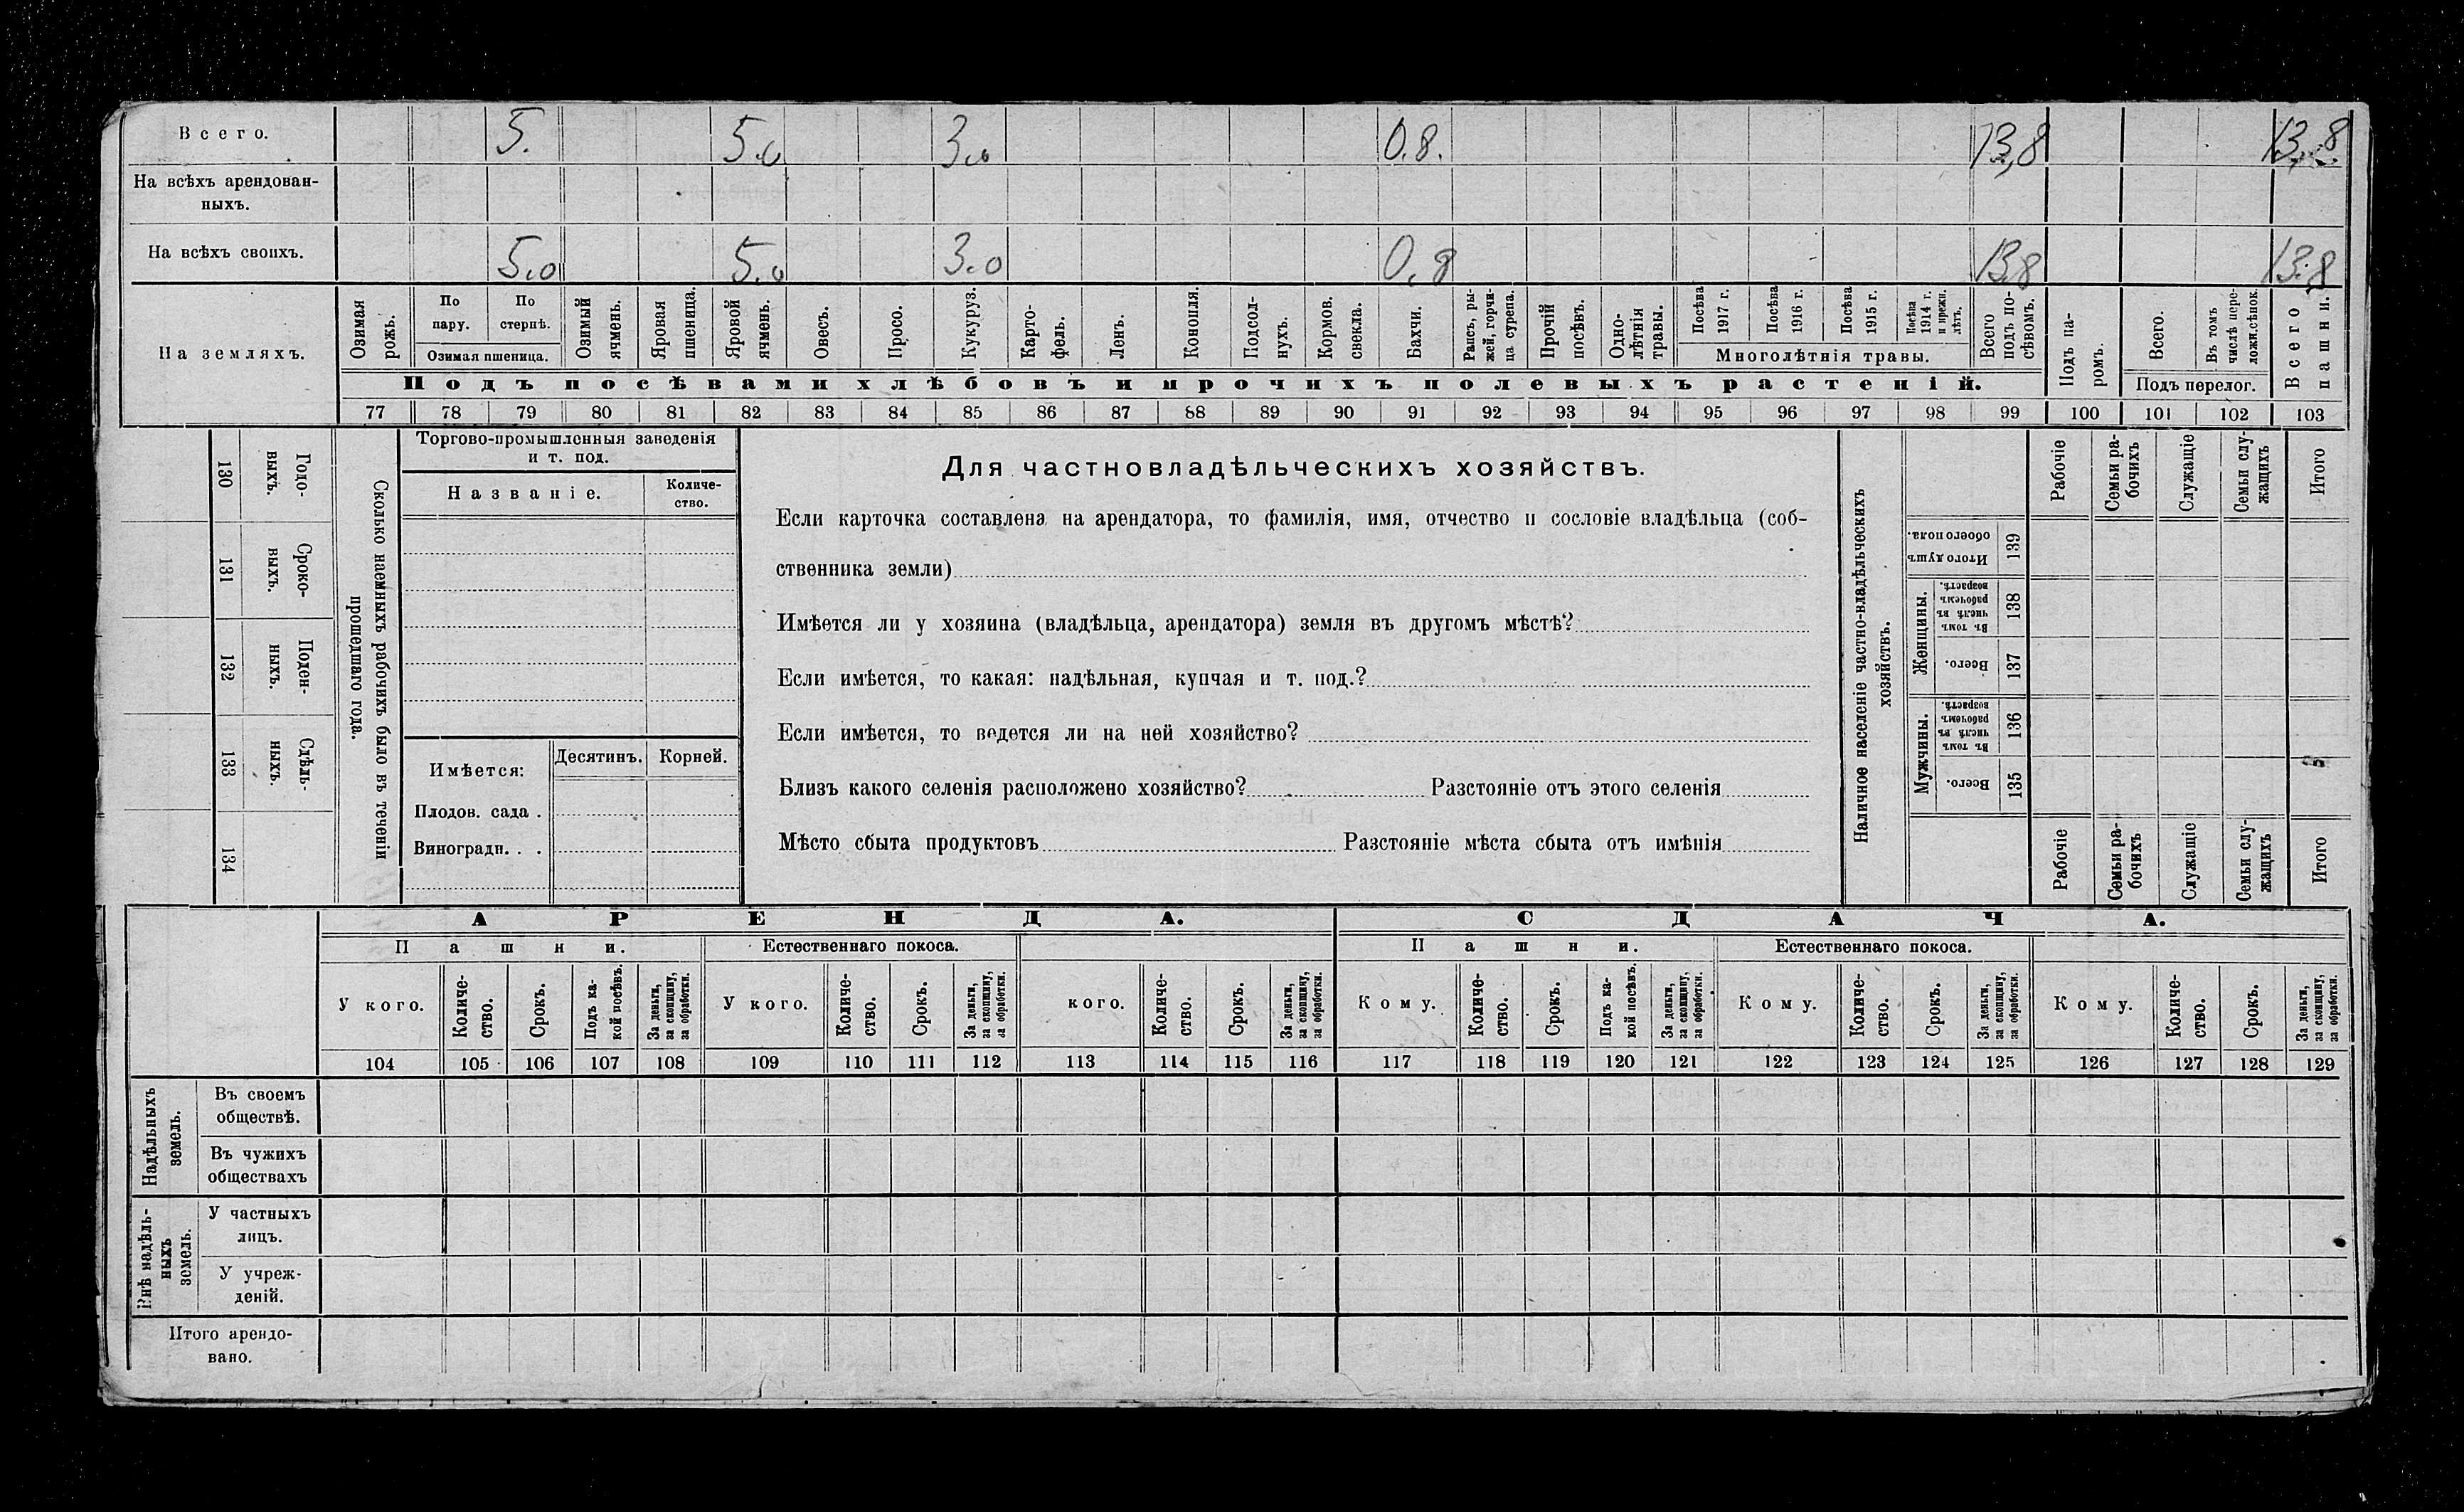 Всего. 5. 5.0 3.0 0.8. 13,8 13,8
На всѣхъ арендован-
ныхъ.
На всѣхъ своихъ. 5.0 5.0 3.0 0.8 13,8 13.8
На земляхъ.
Озимая рожь.
По пару.
По стернѣ.
Озимая пшеница.
Озимый ячмень.
Яровая пшеница.
Яровой ячмень.
Овесъ.
Просо.
Кукуруз.
Карто-
фель.
Ленъ.
Конопля.
Подсол-
нухъ.
Кормов. свекла.
Бахчи.
Рапсъ, ры-
жей, горчи-
ца сурепа.
Прочій посѣвъ.
Одно-
лѣтнія травы.
Посѣва 1917 г.
Посѣва 1916 г.
Посѣва 1915 г.
Посѣва 1914 г. и прежн. лѣтъ.
Многолѣтнія травы.
Всего подъ по-
сѣвомъ.
Подъ па-
ромъ.
Всего.
Въ томъ числѣ пере-
ложн.сѣнок.
Подъ перелог.
Всего пашни.
Подъ посѣвами хлѣбовъ и прочихъ полевыхъ растеній.
77 78 79 80 81 82 83 84 85 86 87 88 89 90 91 92 93 94 95 96 97 98 99 100 101 102 103
130 Годо-
выхъ.
131 Сроко-
выхъ.
132 Поден-
ныхъ.
133 Сдѣль-
ныхъ.
134
Сколько наемныхъ рабочихъ было въ теченіи
прошедшаго года.
Торгово-промышленныя заведенія
и т. под.
Названіе.
Количе-
ство.
Имѣется: Десятинъ. Корней.
Плодов. сада .
Виноградн. . .
Для частновладѣльческихъ хозяйствъ.
Если карточка составлена на арендатора, то фамилія, имя, отчество и сословіе владѣльца (соб-
ственника земли)
Имѣется ли у хозяина (владѣльца, арендатора) земля въ другомъ мѣстѣ?
Если имѣется, то какая: надѣльная, купчая и т. под.?
Если имѣется, то ведется ли на ней хозяйство?
Близъ какого селенія расположено хозяйство? Разстояніе отъ этого селенія
Мѣсто сбыта продуктовъ Разстояніе мѣста сбыта отъ имѣнія
Наличное населеніе частно-владѣльческихъ
хозяйствъ.
Рабочіе
Семьи ра-
бочихъ
Служащіе
Семьи слу-
жащихъ
Итого
Итого душъ обоего пола. 139
Женщины.
Въ томъ числѣ въ рабочемъ возрастѣ. 138
Всего. 137
Мужчины.
Въ томъ числѣ въ рабочемъ возрастѣ. 136
Всего. 135
Рабочіе
Семьи ра-
бочихъ
Служащіе
Семьи слу-
жащихъ
Итого
АРЕНДА. СДАЧА.
Пашни. Естественнаго покоса. Пашни. Естественнаго покоса.
У кого.
Количе-
ство.
Срокъ.
Подъ ка-
кой посѣвъ.
За деньги, за скопщину, за обработки.
У кого.
Количе-
ство.
Срокъ.
За деньги, за скопщину, за обработки.
кого.
Количе-
ство.
Срокъ.
За деньги, за скопщину, за обработки.
Кому.
Количе-
ство.
Срокъ.
Подъ ка-
кой посѣвъ.
За деньги, за скопщину, за обработки.
Кому.
Количе-
ство.
Срокъ.
За деньги, за скопщину, за обработки.
Кому.
Количе-
ство.
Срокъ.
За деньги, за скопщину, за обработки.
104 105 106 107 108 109 110 111 112 113 114 115 116 117 118 119 120 121 122 123 124 125 126 127 128 129
Надѣльныхъ земель.
Въ своемъ
обществѣ.
Въ чужихъ
обществахъ
Внѣ надѣль-
ныхъ земель.
У частныхъ
лицъ.
У учреж-
деній.
Итого арендо-
вано.